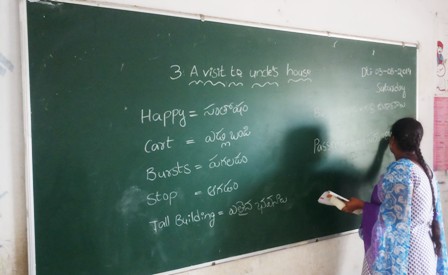 3 A visit to uncle's house
Dt: 03-08-2019
Saturday
Happy = సంతోషం
Cart = ఎడ్లబండి
Bursts = పగలడం
Stop = ఆగడం
Tall Building = ఎత్తైన భవనాలు